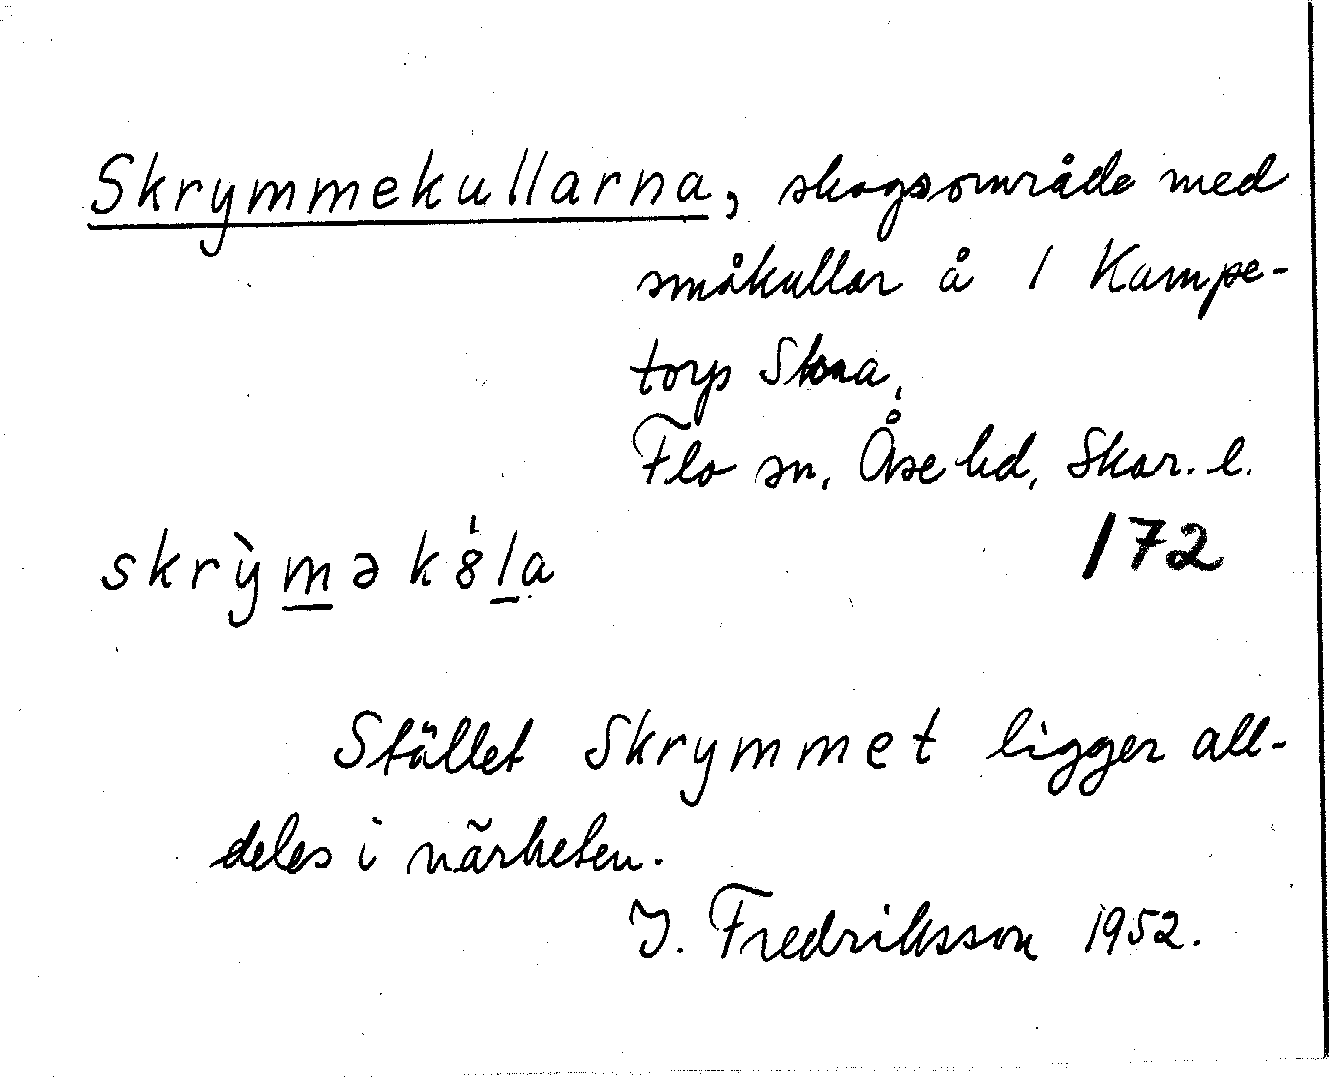 Skrymmekullarna, skogsområde med
småkullar å 1 Kampe-
torp Stora,
Flo sn, Åse hd, Skar. l.
172
skrỳmək8́la
Stället Skrymmet ligger all-
deles i närheten.
J. Fredriksson 1952.